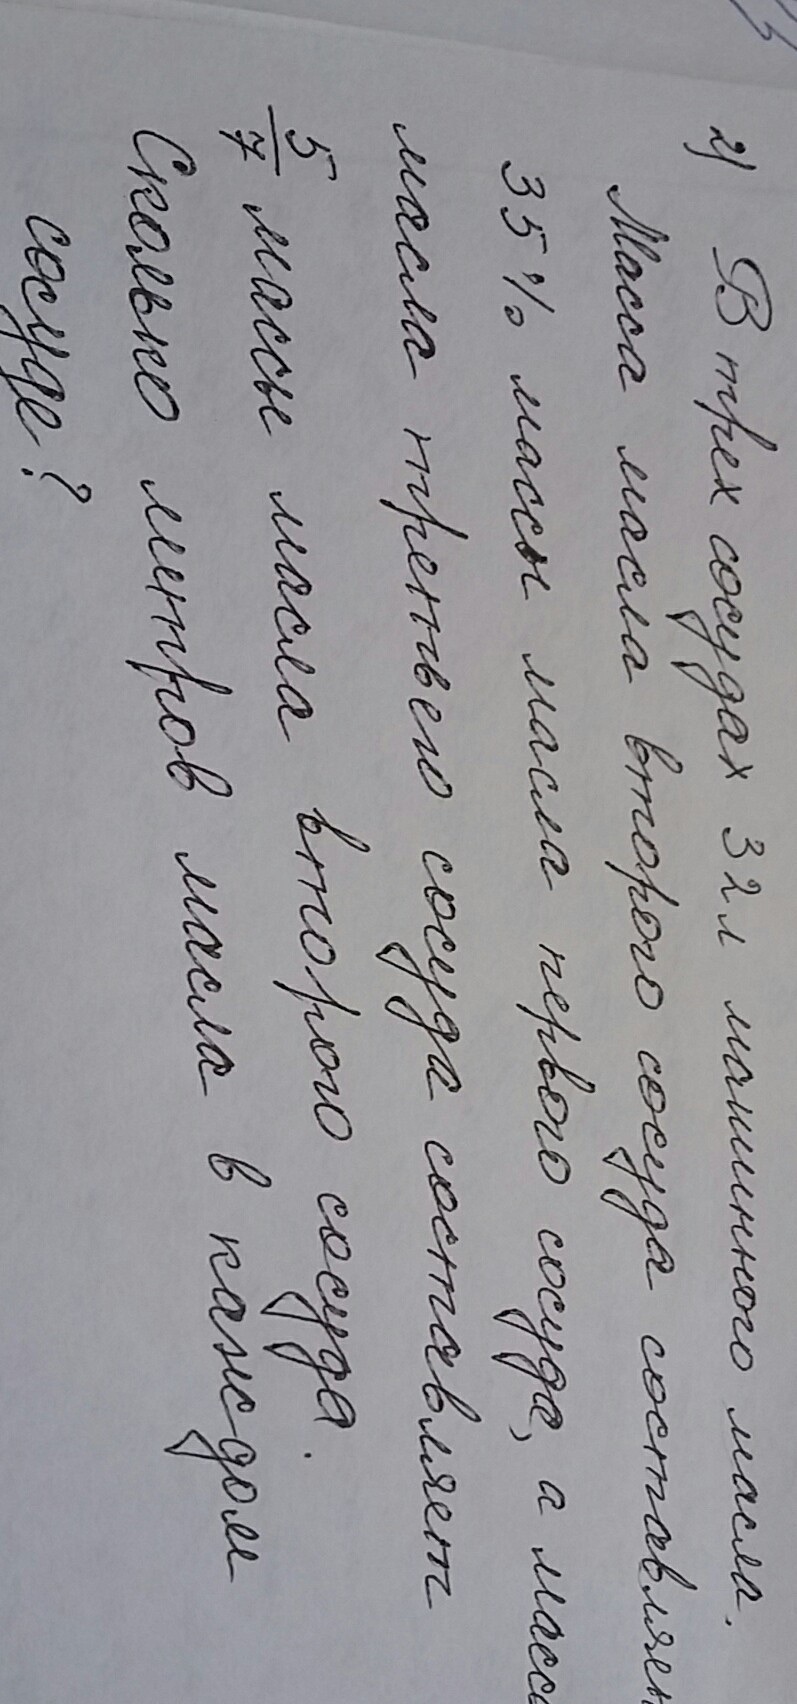 2) В трех сосудах 32 л машинного масла.
Масса масла второго сосуда составляе
35% массы масла первого сосуда, а масс
масла третьего сосуда составляет
5/7 массы масла второго сосуда.
Сколько литров масла в каждом
сосуде?